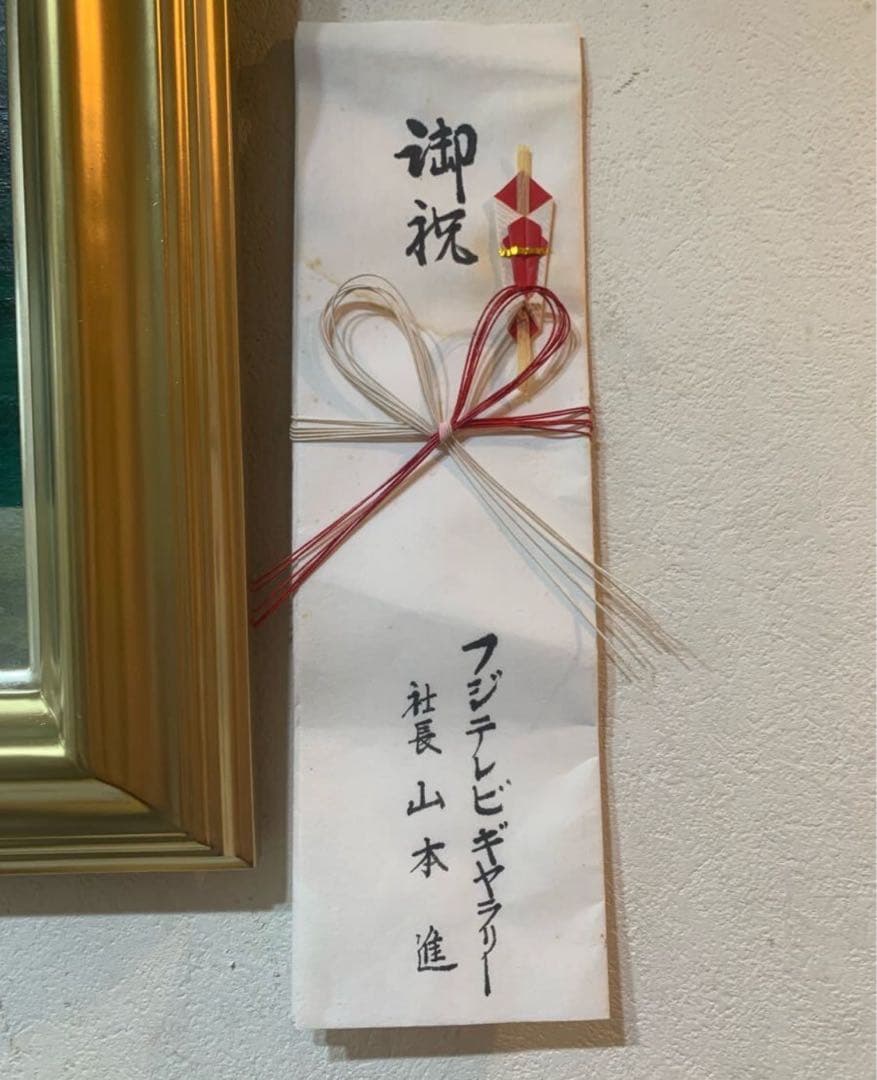 御祝
フジテレビギャラリー
社長 山本 進